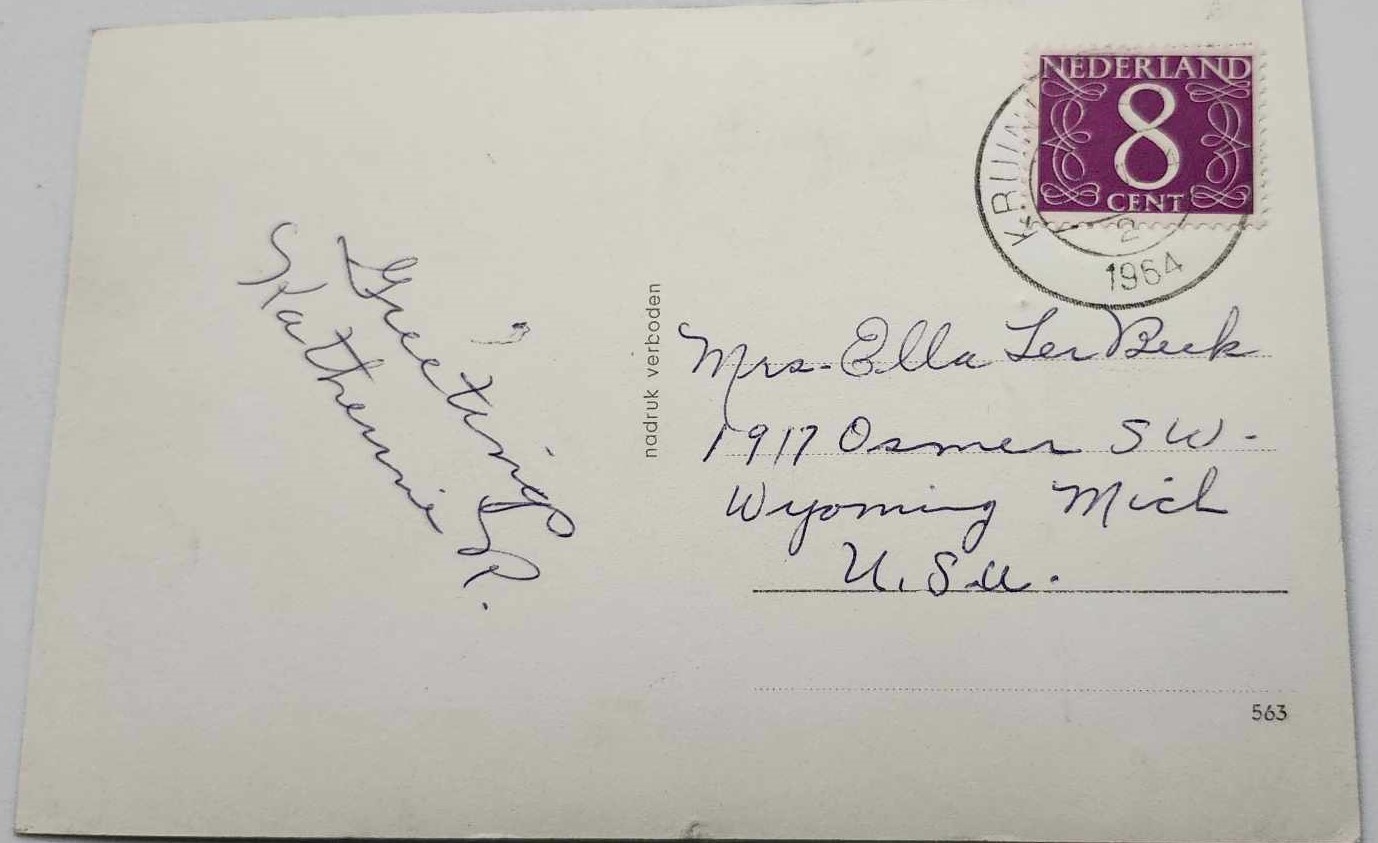 Greetings
Katherine P.
nadruk verboden
NEDERLAND
8
CENT
2
1964
Mrs. Ella Ter Beek
1917 Osmer SW.
Wyoming Mich
U.S.A.
563